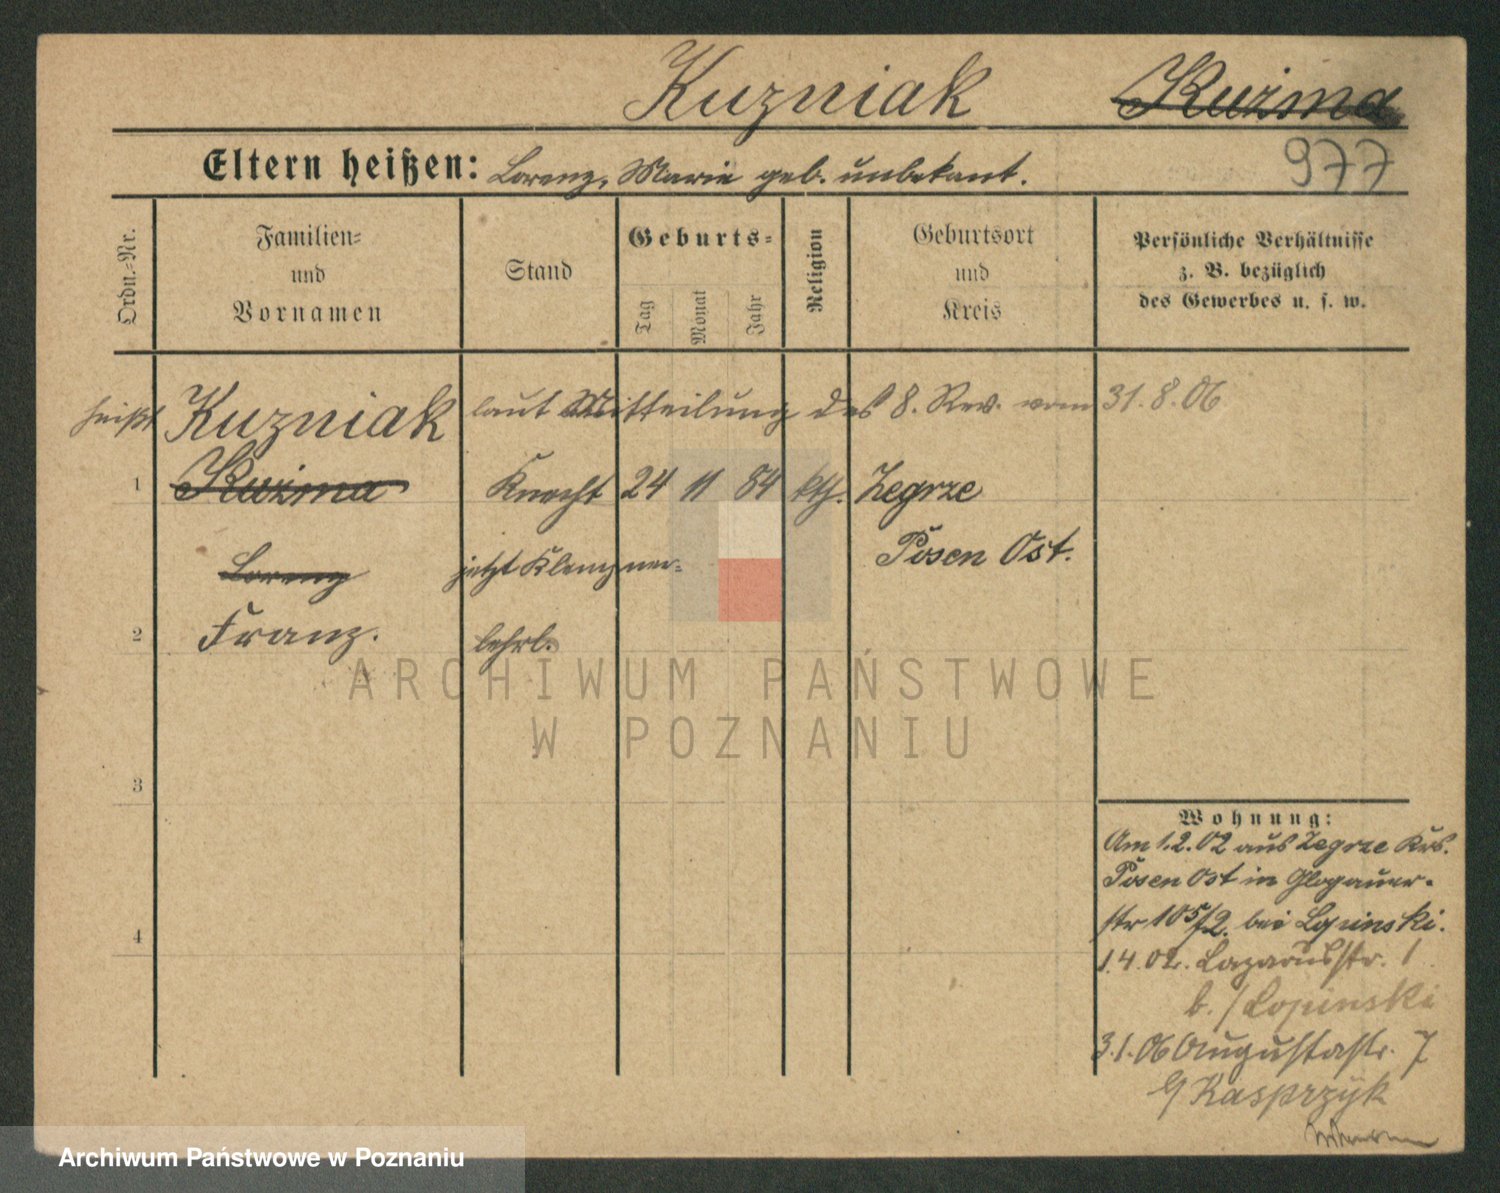 Kuzniak Kuźma
977
Eltern heißen: Lorenz, Marie geb. unbekant.
Ordn.-Nr.
Familien-
und
Vornamen
Stand
Geburts-
Tag
Monat
Jahr
Religion
Geburtsort
und
Kreis
Persönliche Verhältnisse
z. B. bezüglich
des Gewerbes u. s. w.
heißt Kuzniak laut Mitteilung des 8. Rev. vom 31.8.06
1 Kuźma Knecht 24 11 84 kth. Zegrze
Lorenz jetzt Klempner- Posen Ost.
2 Franz. lehrl.
3
4
Wohnung:
Am 1.2.02 aus Zegrze Krs.
Posen Ost in Glogauer-
str 105/2. bei
1.4.02. Lazarusstr. 1
b. /Lopinski
3.1.06 Augustastr. 7
b/ Kasprzyk
ARCHIWUM PAŃSTWOWE
W POZNANIU
Archiwum Państwowe w Poznaniu